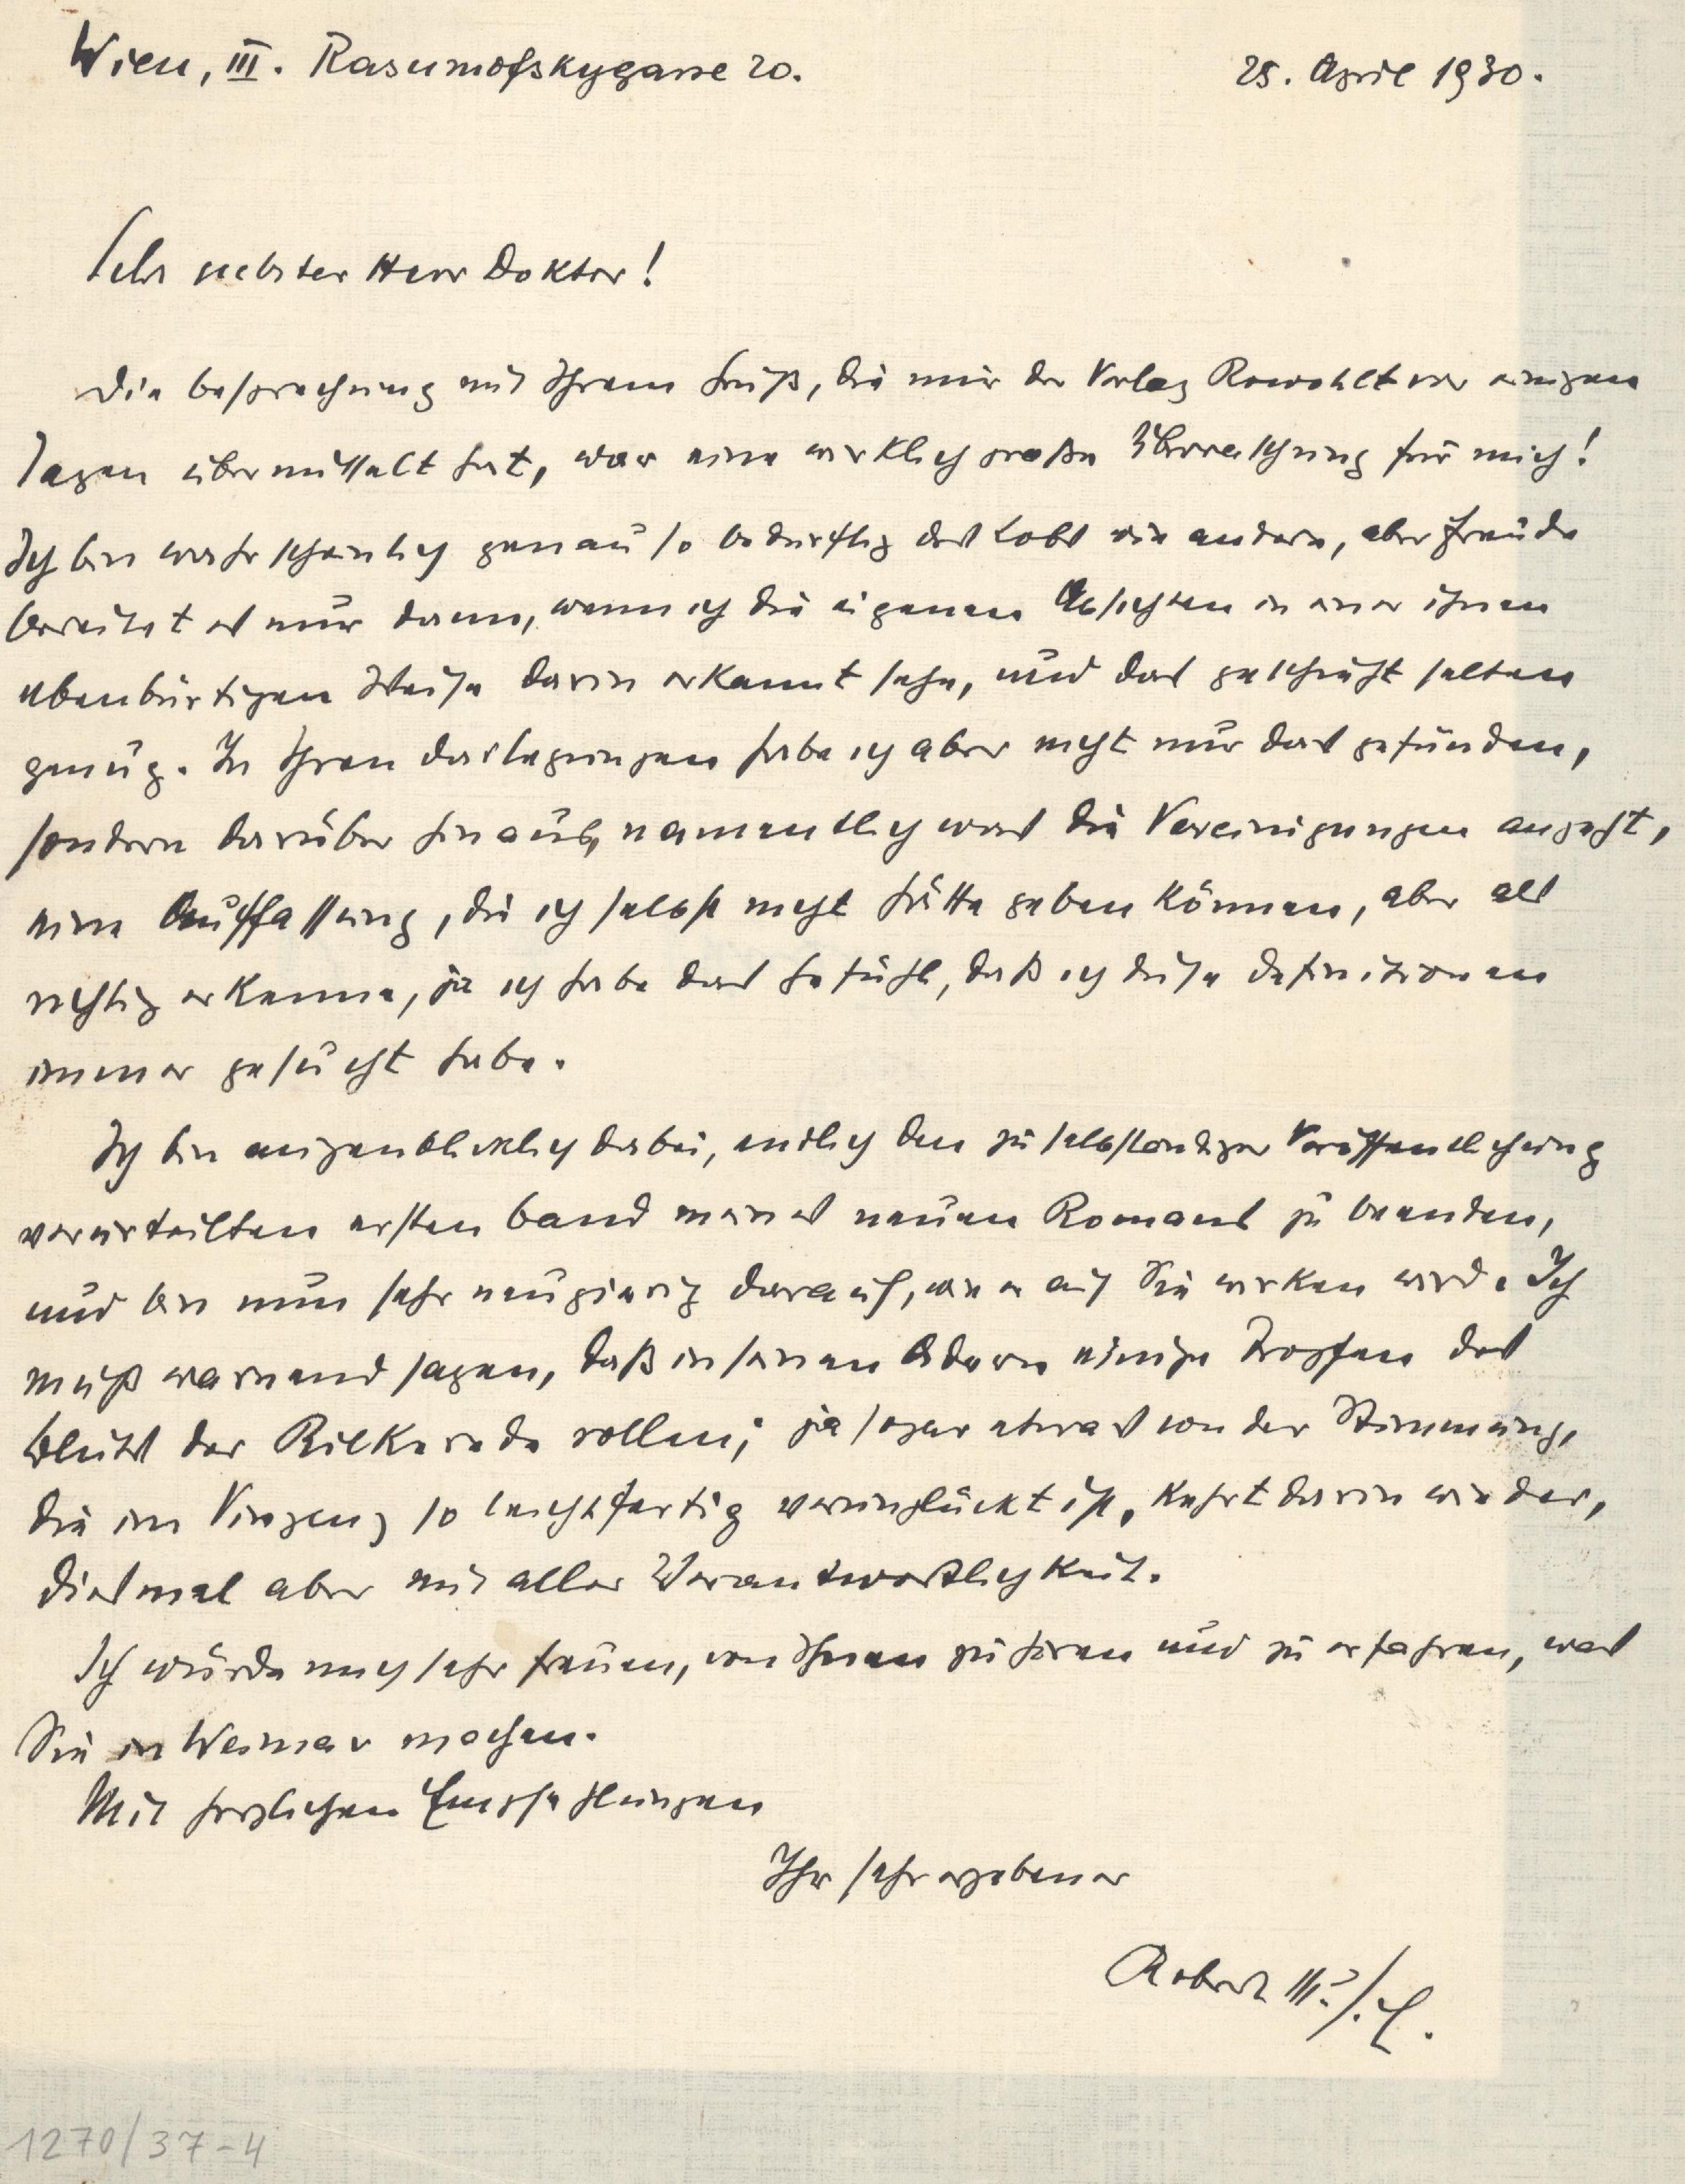 Wien, III. Rasumofskygasse 20.
25. April 1930.
Sehr geehrter Herr Doktor!
Die Besprechung mit Ihrem Gruß, die mir der Verlag Rowohlt vor einigen
Tagen übermittelt hat, war eine wirklich große Überraschung für mich!
Ich bin wahrscheinlich genau so bedürftig des Lobs wie andere, aber Freude
bereitet es nur dann, wenn ich die eigenen Absichten in einer ihnen
ebenbürtigen Weise darin erkannt sehe, und das geschieht selten
genug. In Ihren Darlegungen habe ich aber nicht nur das gefunden,
sondern darüber hinaus, namentlich was die Vereinigungen angeht,
eine Auffassung, die ich selbst nicht hätte geben können, aber als
richtig erkenne, ja ich habe das Gefühl, daß ich diese Definitionen
immer gesucht habe.
Ich bin augenblicklich dabei, endlich den zu selbständiger Veröffentlichung
verurteilten ersten Band meines neuen Romans zu beenden,
und bin nun sehr neugierig darauf, wie er auf Sie wirken wird. Ich
muß warnend sagen, daß in seinen Adern einige Tropfen des
Bluts der Rilkerede rollen; ja sogar etwas von der Stimmung,
die im Vinzenz so leichtfertig verunglückt ist, kehrt darin wieder,
diesmal aber mit aller Verantwortlichkeit.
Ich würde mich sehr freuen, von Ihnen zu hören und zu erfahren, was
Sie in Weimar machen.
Mit herzlichen Empfehlungen
Ihr sehr ergebener
Robert Musil.
1270/37-4